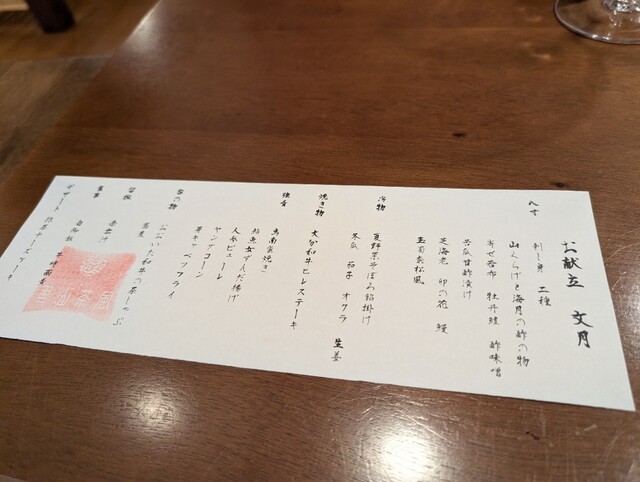 お献立 文月
八寸
刺し身 二種
山くらげと海月の酢の物
寄せ昆布 牡丹鱧 酢味噌
苦瓜甘酢漬け
芝海老 卯の花 鰻
玉蜀黍松風
冷物
夏野菜そぼろ餡掛け
冬瓜 茄子 オクラ 生姜
焼き物
大分和牛ヒレステーキ
強肴
鳥南蛮焼き
鮎魚女ずんだ揚げ
人参ピューレ
ヤングコーン
芽キャベツフライ
おおいた和牛の茶しゃぶ
蕎麦
留椀
赤出汁
食事
白御飯
デザート 抹茶チーズケーキ